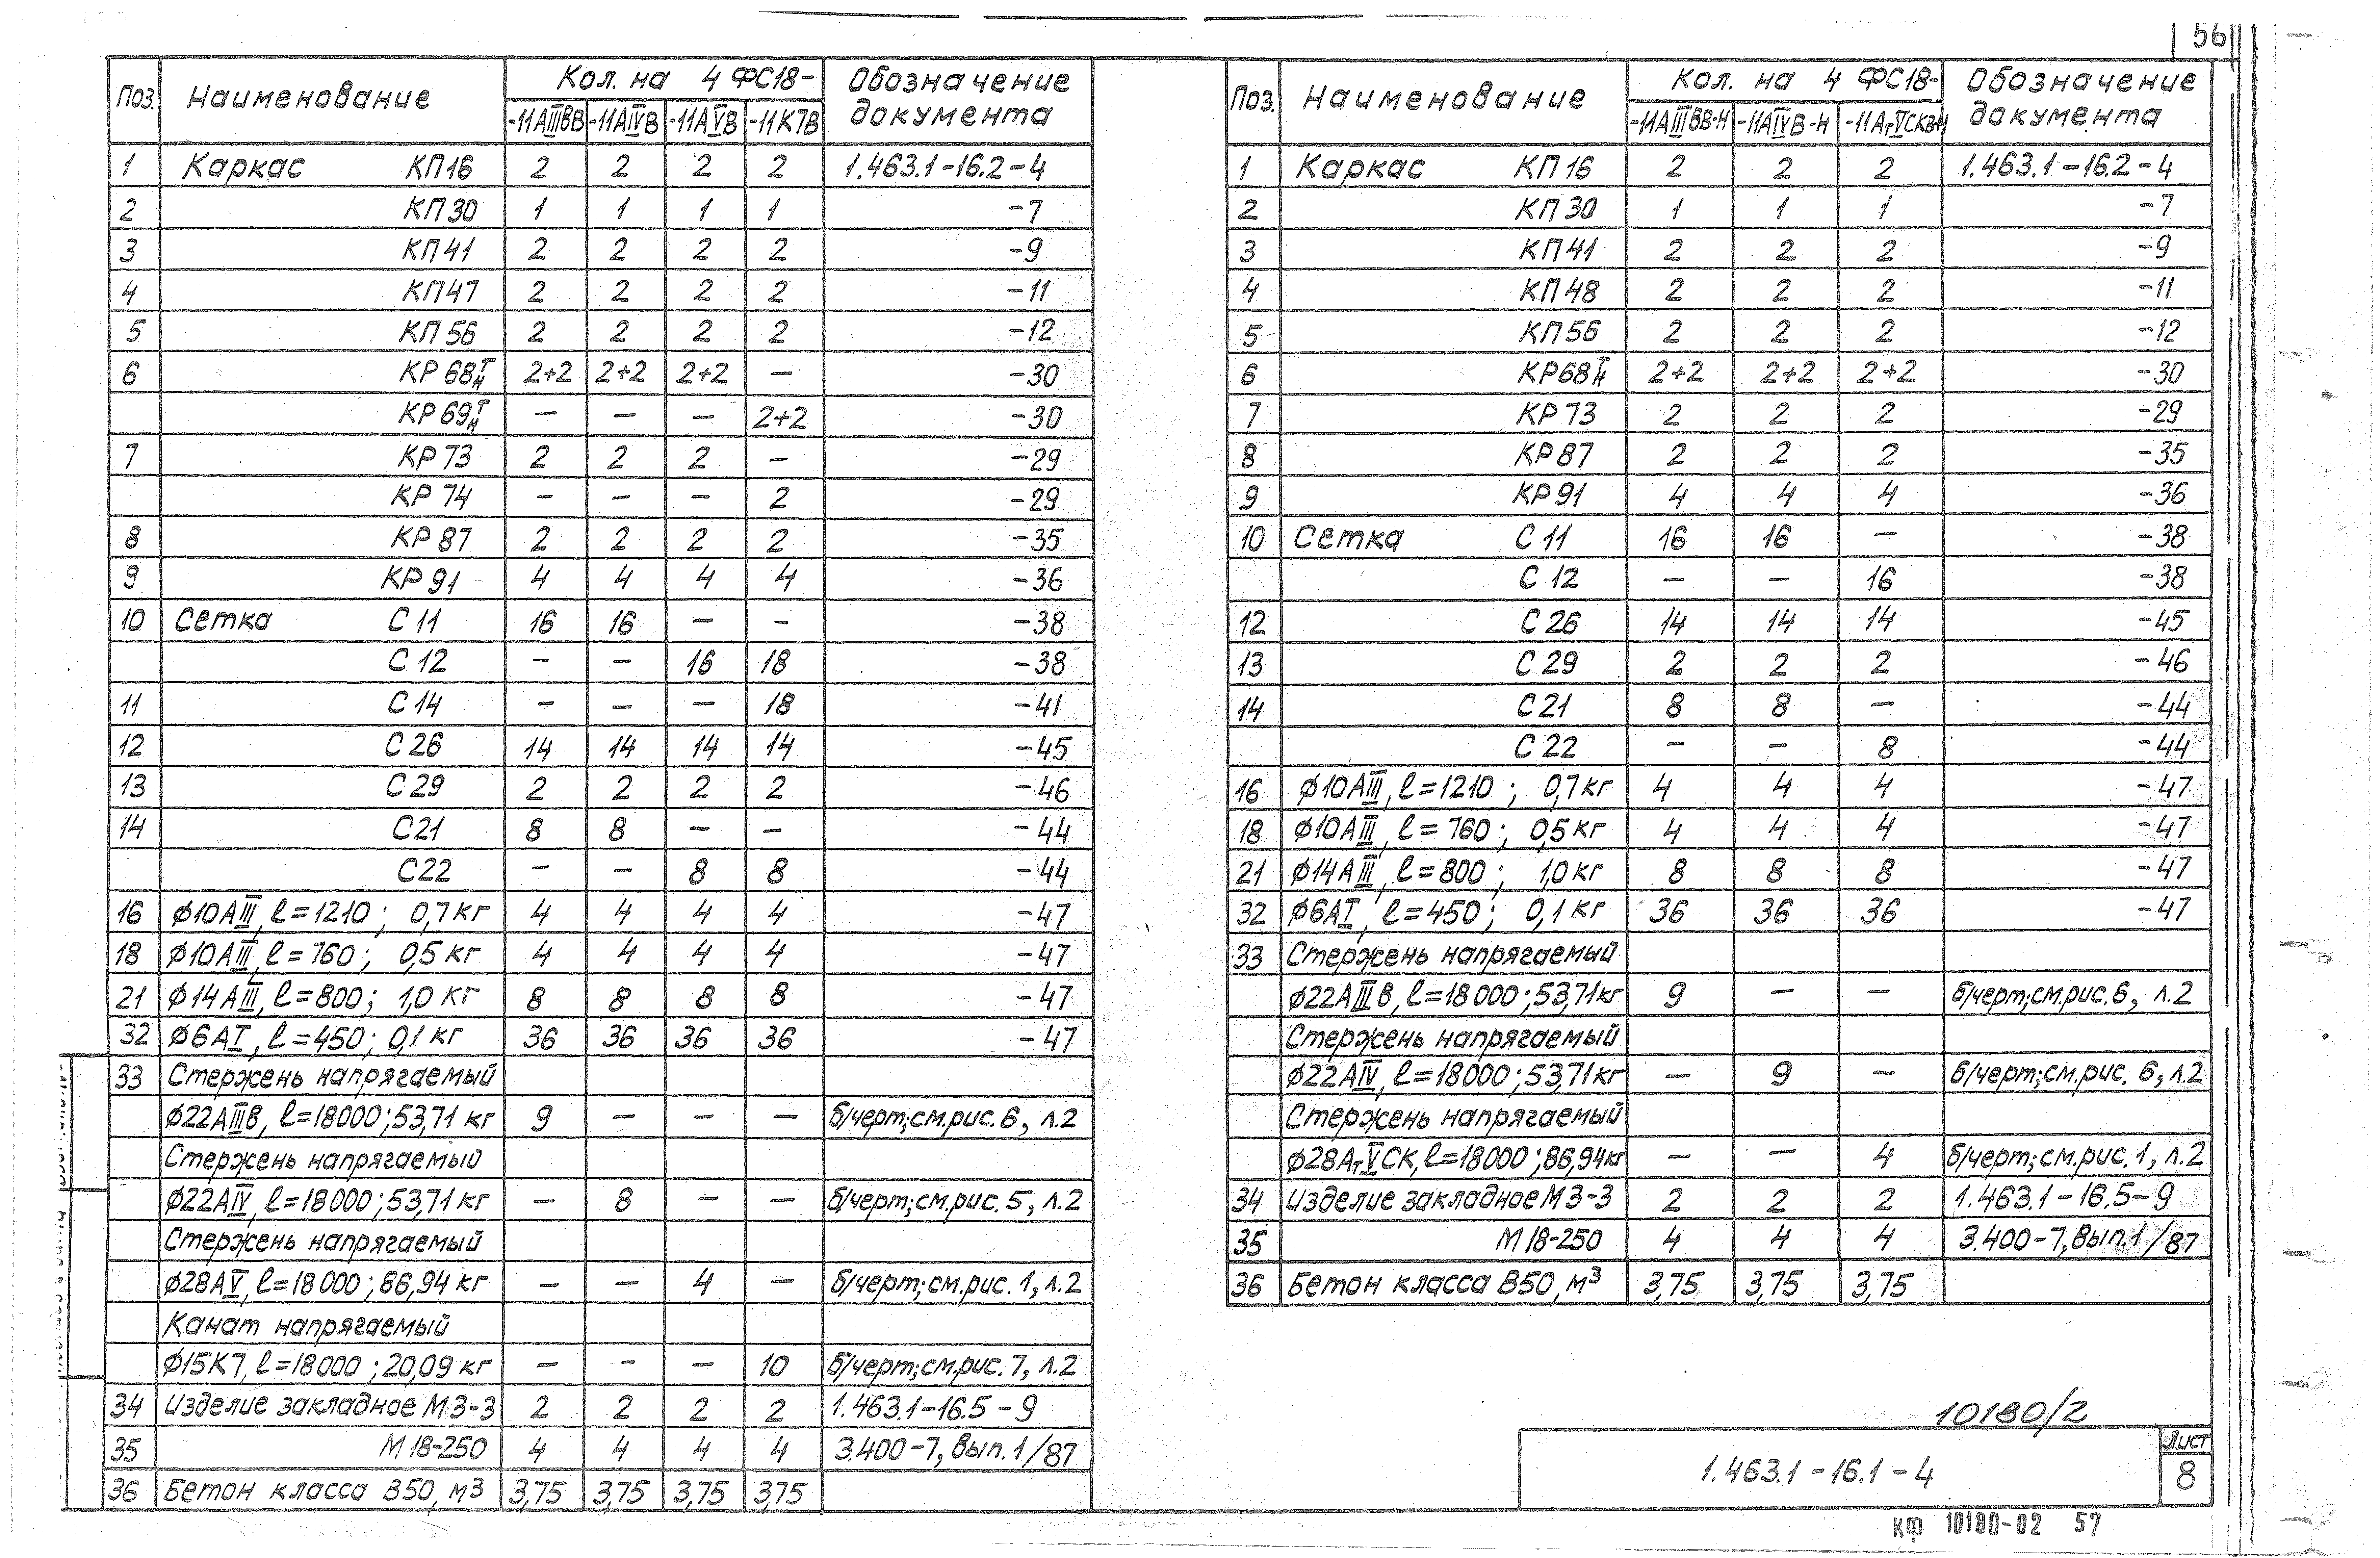 56
Поз. Наименование Кол. на 4 ФС18- Обозначение документа
-11АIIIВВ -11АIVВ -11АVВ -11К7В
1 Каркас КП16 2 2 2 2 1.463.1-16.2-4
2 КП30 1 1 1 1 -7
3 КП41 2 2 2 2 -9
4 КП47 2 2 2 2 -11
5 КП56 2 2 2 2 -12
6 КР68Т/Н 2+2 2+2 2+2 — -30
КР69Т/Н — — — 2+2 -30
7 КР73 2 2 2 — -29
КР74 — — — 2 -29
8 КР87 2 2 2 2 -35
9 КР91 4 4 4 4 -36
10 Сетка С11 16 16 — — -38
С12 — — 16 18 -38
11 С14 — — — 18 -41
12 С26 14 14 14 14 -45
13 С29 2 2 2 2 -46
14 С21 8 8 — — -44
С22 — — 8 8 -44
16 ϕ10АIII, ℓ=1210; 0,7кг 4 4 4 4 -47
18 ϕ10АIII, ℓ=760; 0,5кг 4 4 4 4 -47
21 ϕ14АIII, ℓ=800; 1,0кг 8 8 8 8 -47
32 ϕ6АI, ℓ=450; 0,1кг 36 36 36 36 -47
33 Стержень напрягаемый
ϕ22АIIIВ, ℓ=18000; 53,71 кг 9 — — — б/черт; см.рис.6, л.2
Стержень напрягаемый
ϕ22АIV, ℓ=18000; 53,71кг — 8 — — б/черт; см.рис.5, л.2
Стержень напрягаемый
ϕ28АV, ℓ=18000; 86,94 кг — — 4 — б/черт; см.рис.1, л.2
Канат напрягаемый
ϕ15К7, ℓ=18000; 20,09 кг — — — 10 б/черт; см.рис.7, л.2
34 Изделие закладное М3-3 2 2 2 2 1.463.1-16.5-9
35 М18-250 4 4 4 4 3.400-7, вып.1/87
36 Бетон класса В50, м³ 3,75 3,75 3,75 3,75
Поз. Наименование Кол. на 4 ФС18- Обозначение документа
-11АIIIВВ-Н -11АIVВ-Н -11АтVСКВ-Н
1 Каркас КП16 2 2 2 1.463.1-16.2-4
2 КП30 1 1 1 -7
3 КП41 2 2 2 -9
4 КП48 2 2 2 -11
5 КП56 2 2 2 -12
6 КР68Т/Н 2+2 2+2 2+2 -30
7 КР73 2 2 2 -29
8 КР87 2 2 2 -35
9 КР91 4 4 4 -36
10 Сетка С11 16 16 — -38
С12 — — 16 -38
12 С26 14 14 14 -45
13 С29 2 2 2 -46
14 С21 8 8 — -44
С22 — — 8 -44
16 ϕ10АIII, ℓ=1210; 0,7кг 4 4 4 -47
18 ϕ10АIII, ℓ=760; 0,5кг 4 4 4 -47
21 ϕ14АIII, ℓ=800; 1,0кг 8 8 8 -47
32 ϕ6АI, ℓ=450; 0,1кг 36 36 36 -47
33 Стержень напрягаемый
ϕ22АIIIВ, ℓ=18000; 53,71кг 9 — — б/черт; см.рис.6, л.2
Стержень напрягаемый
ϕ22АIV, ℓ=18000; 53,71кг — 9 — б/черт; см.рис. 6, л.2
Стержень напрягаемый
ϕ28АтVСК, ℓ=18000; 86,94кг — — 4 б/черт; см.рис.1, л.2
34 Изделие закладное М3-3 2 2 2 1.463.1-16.5-9
35 М18-250 4 4 4 3.400-7, вып.1/87
36 Бетон класса В50, м³ 3,75 3,75 3,75
10180/2
1.463.1-16.1-4
Лист
8
КФ 10180-02 57